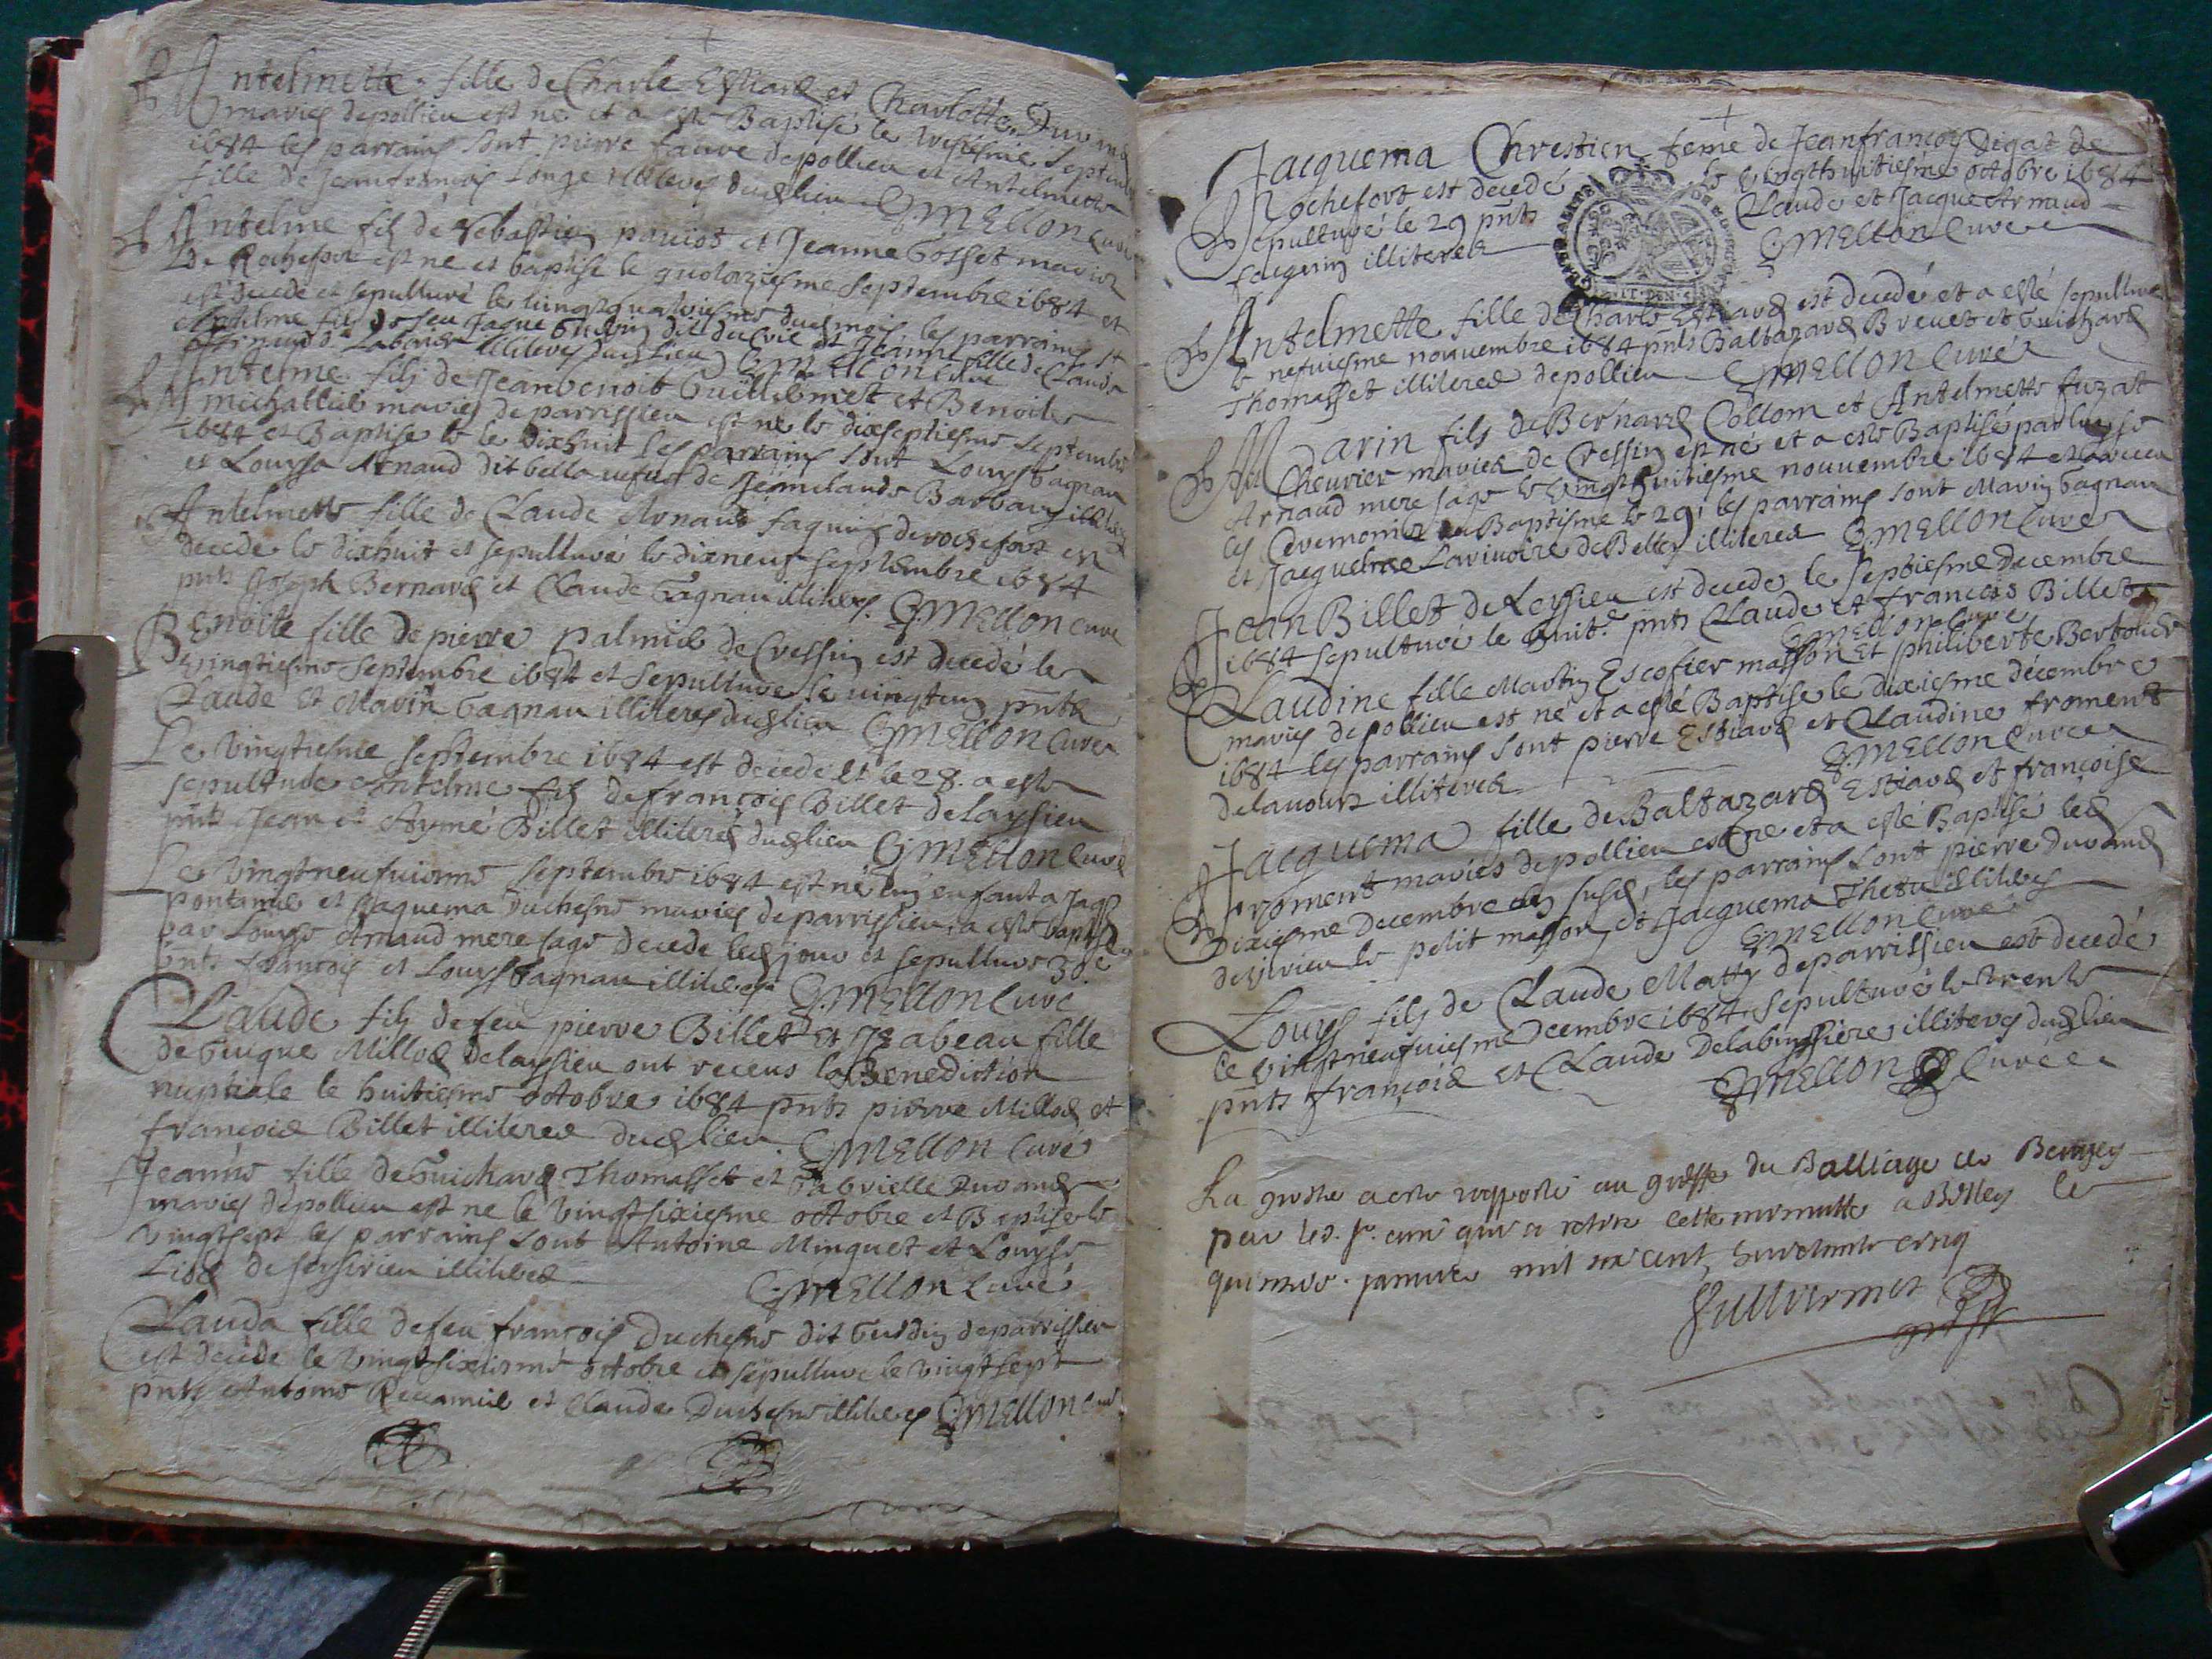 Antelmette fille de Charle Estiard et Charlotte Durand
maries de pollieu est ne et a este Baptisé le tresiesme septembre
1684 les parrains sont pierre faure de pollieu et Antelmette
fille de Jeanfrancois Longe illiteres dud lieu CJMellon Curé
Antelme fils de Sebastien pauiot et Jeanne Gosset maries
de Rochefort est ne et baptise le quotorziesme septembre 1684 et
est decede et sepulturé le vingtquatriesme dud mois les parrains st
Antelme fils de feu Jaque Guidin dit ducrie et Jeanne fille de Claude
illiteres dud lieu CJMellon Curé
Antelme fils de Jean benoit Guillermet et Benoite
michallid maries de parrissieu est ne le dixseptiesme septembre
1684 et Baptise le dixhuit les parrains sont Louys Gagnau
et Louysa Arnaud dit bella de Jeanclaude Barbau illiteres
Antelmette fille de Claude Arnaud faquin de rochefort est
decede le dixhuit et sepulturé le dixneuf septembre 1684
pnts Joseph Bernard et Claude Gagnau illiteres CJMellon Curé
Benoite fille de pierre palmie de Cressin est decedé le
vingtiesme septembre 1684 et sepulturé le vingtun pnts
Claude et Marin Gagnau illiteres dud lieu CJMellon Curé
Le vingtiesme septembre 1684 est decede et le 28 a este
sepulturé Antelme fils de françois Billet de Laysieu
pnts Jean et Aymé Billet illiteres dud lieu CJMellon Curé
Le vingtneufuiesme septembre 1684 est né un enfant a Jaqs
pontanie et Jaquema Duchesne maries de parrissieu, a este baptisé
par Louyse Arnaud mere sage decede led jour et sepulturé 30e
pnts francois et Louys Gagnau illiteres CJMellon Curé
Claude fils de feu pierre Billet et Jsabeau fille
de Guigue Milliod de laysieu ont receus la Benediction
nuptiale le huitiesme octobre 1684 pnts pierre Milliod et
françois Billet illiteres dud lieu CJMellon Curé
Jeanne fille de Guichard Thomasset et Gabrielle Durand
maries de pollieu est ne le vingtsixiesme octobre et Baptisé le
vingtsept les parrains sont Antoine Minguet et Louyse
de illiteres CJMellon Curé
Clauda fille de feu françois Duchesne dit Guidin de parrissieu
est decede le vingtsixiesme octobre et sepulturé le vingtsept
pnts Antoine Recamie et Claude Duchesne illiteres CJMellon Curé
Jacquema Chrestien feme de Jeanfrancois Digat de
Rochefort est decedé le vingthuitiesme octobre 1684
sepulturé le 29 pnts Claude et Jacque Arnaud
faquin illiteres CJMellon Curé
Antelmette fille de Charle Estiard est decedé et a esté sepulturé
le nefuiesme nouuembre 1684 pnts Baltazard Breuet et Guichard
Thomasset illiteres de pollieu CJMellon Curé
Marin fils de Bernard Collom et Antelmette fuzat
Cheurier maries de Cressin est né et a este Baptisé par Louyse
Arnaud mere sage le vingthuitiesme nouuembre 1684 et a receu
les Ceremonies du Baptisme le 29, les parrains sont Marin Gagnau
et Jacqueline Lavinoire de Belley illiteres CJMellon Curé
Jean Billet de Leysieu est decede le septiesme decembre
1684 sepulturé le huit.e pnts Claude et françois Billet
CJMellon Curé
Claudine fille Martin Escofier masson et philiberte Bertolier
maries de pollieu est né et a esté Baptisé le dixiesme décembre
1684 les parrains sont pierre Estiard et Claudine froment
de lauours illiteres CJMellon Curé
Jacquema fille de Baltazard Estiard et françoise
froment maries de pollieu est ne et a esté Baptisé led
dixiesme decembre an susd, les parrains sont pierre Durand
le petit masson et Jacquema illiteres
CJMellon Curé
Louys fils de Claude Matty de parrissieu est decedé
le vingtneufuiesme Decembre 1684, sepulturé le trente
pnts françois et Claude Delabussiere illiteres dud lieu
CJMellon Curé
La grosse a este rapportee au greffe du Balliage de Beugey
par led. sr. curé qui a retiré cette minutte a Belley le
quinze. januier mil six cent huictante cinq
Guilliermet